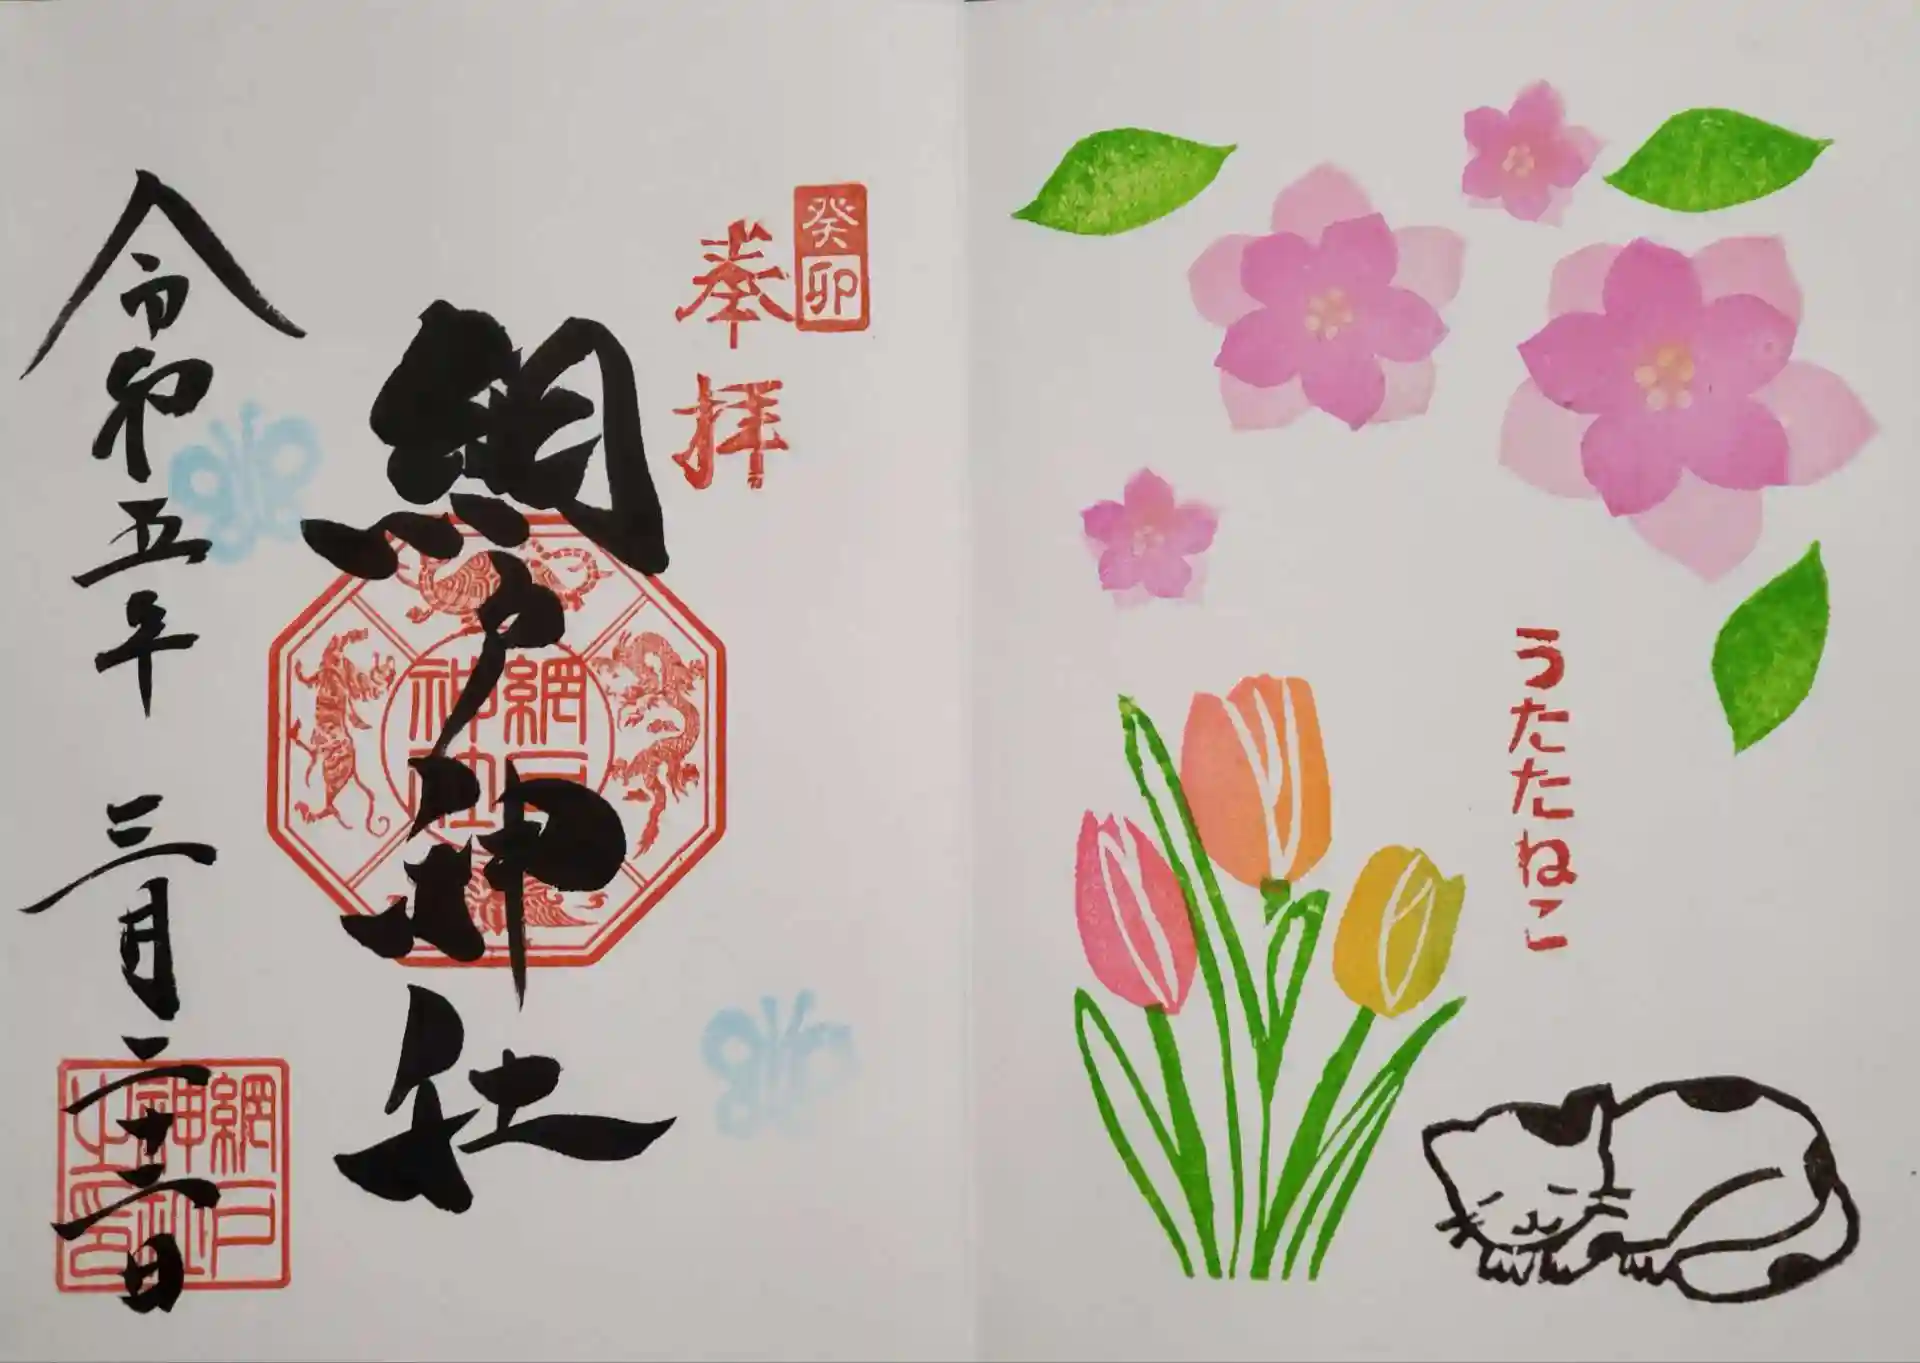 うたたねこ
癸卯
奉拝
網戸神社
網戸
神社
令和五年 三月二十二日
網戸
神社
之印